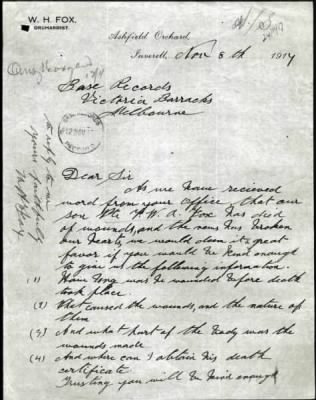 W. H. FOX,
ORCHARDIST.
Ashfield Orchard
Inverell, Nov 8th 1917
Base Records
Victoria Barracks
Melbourne
Dear Sir
As we have recieved
word from your office, that our
son Pte F.W.A. Fox has died
of wounds, and the news has broken
our hearts, we would deem it a great
favor if you would be kind enough
to give us the following information.
(1) How long was he wounded before death
took place
(2) What caused the wounds, and the nature of
them
(3) And what part of the body was the
wounds made
(4) And where can I obtain his death
certificate
Trusting you will be kind enough
to reply to me
yours faithfully